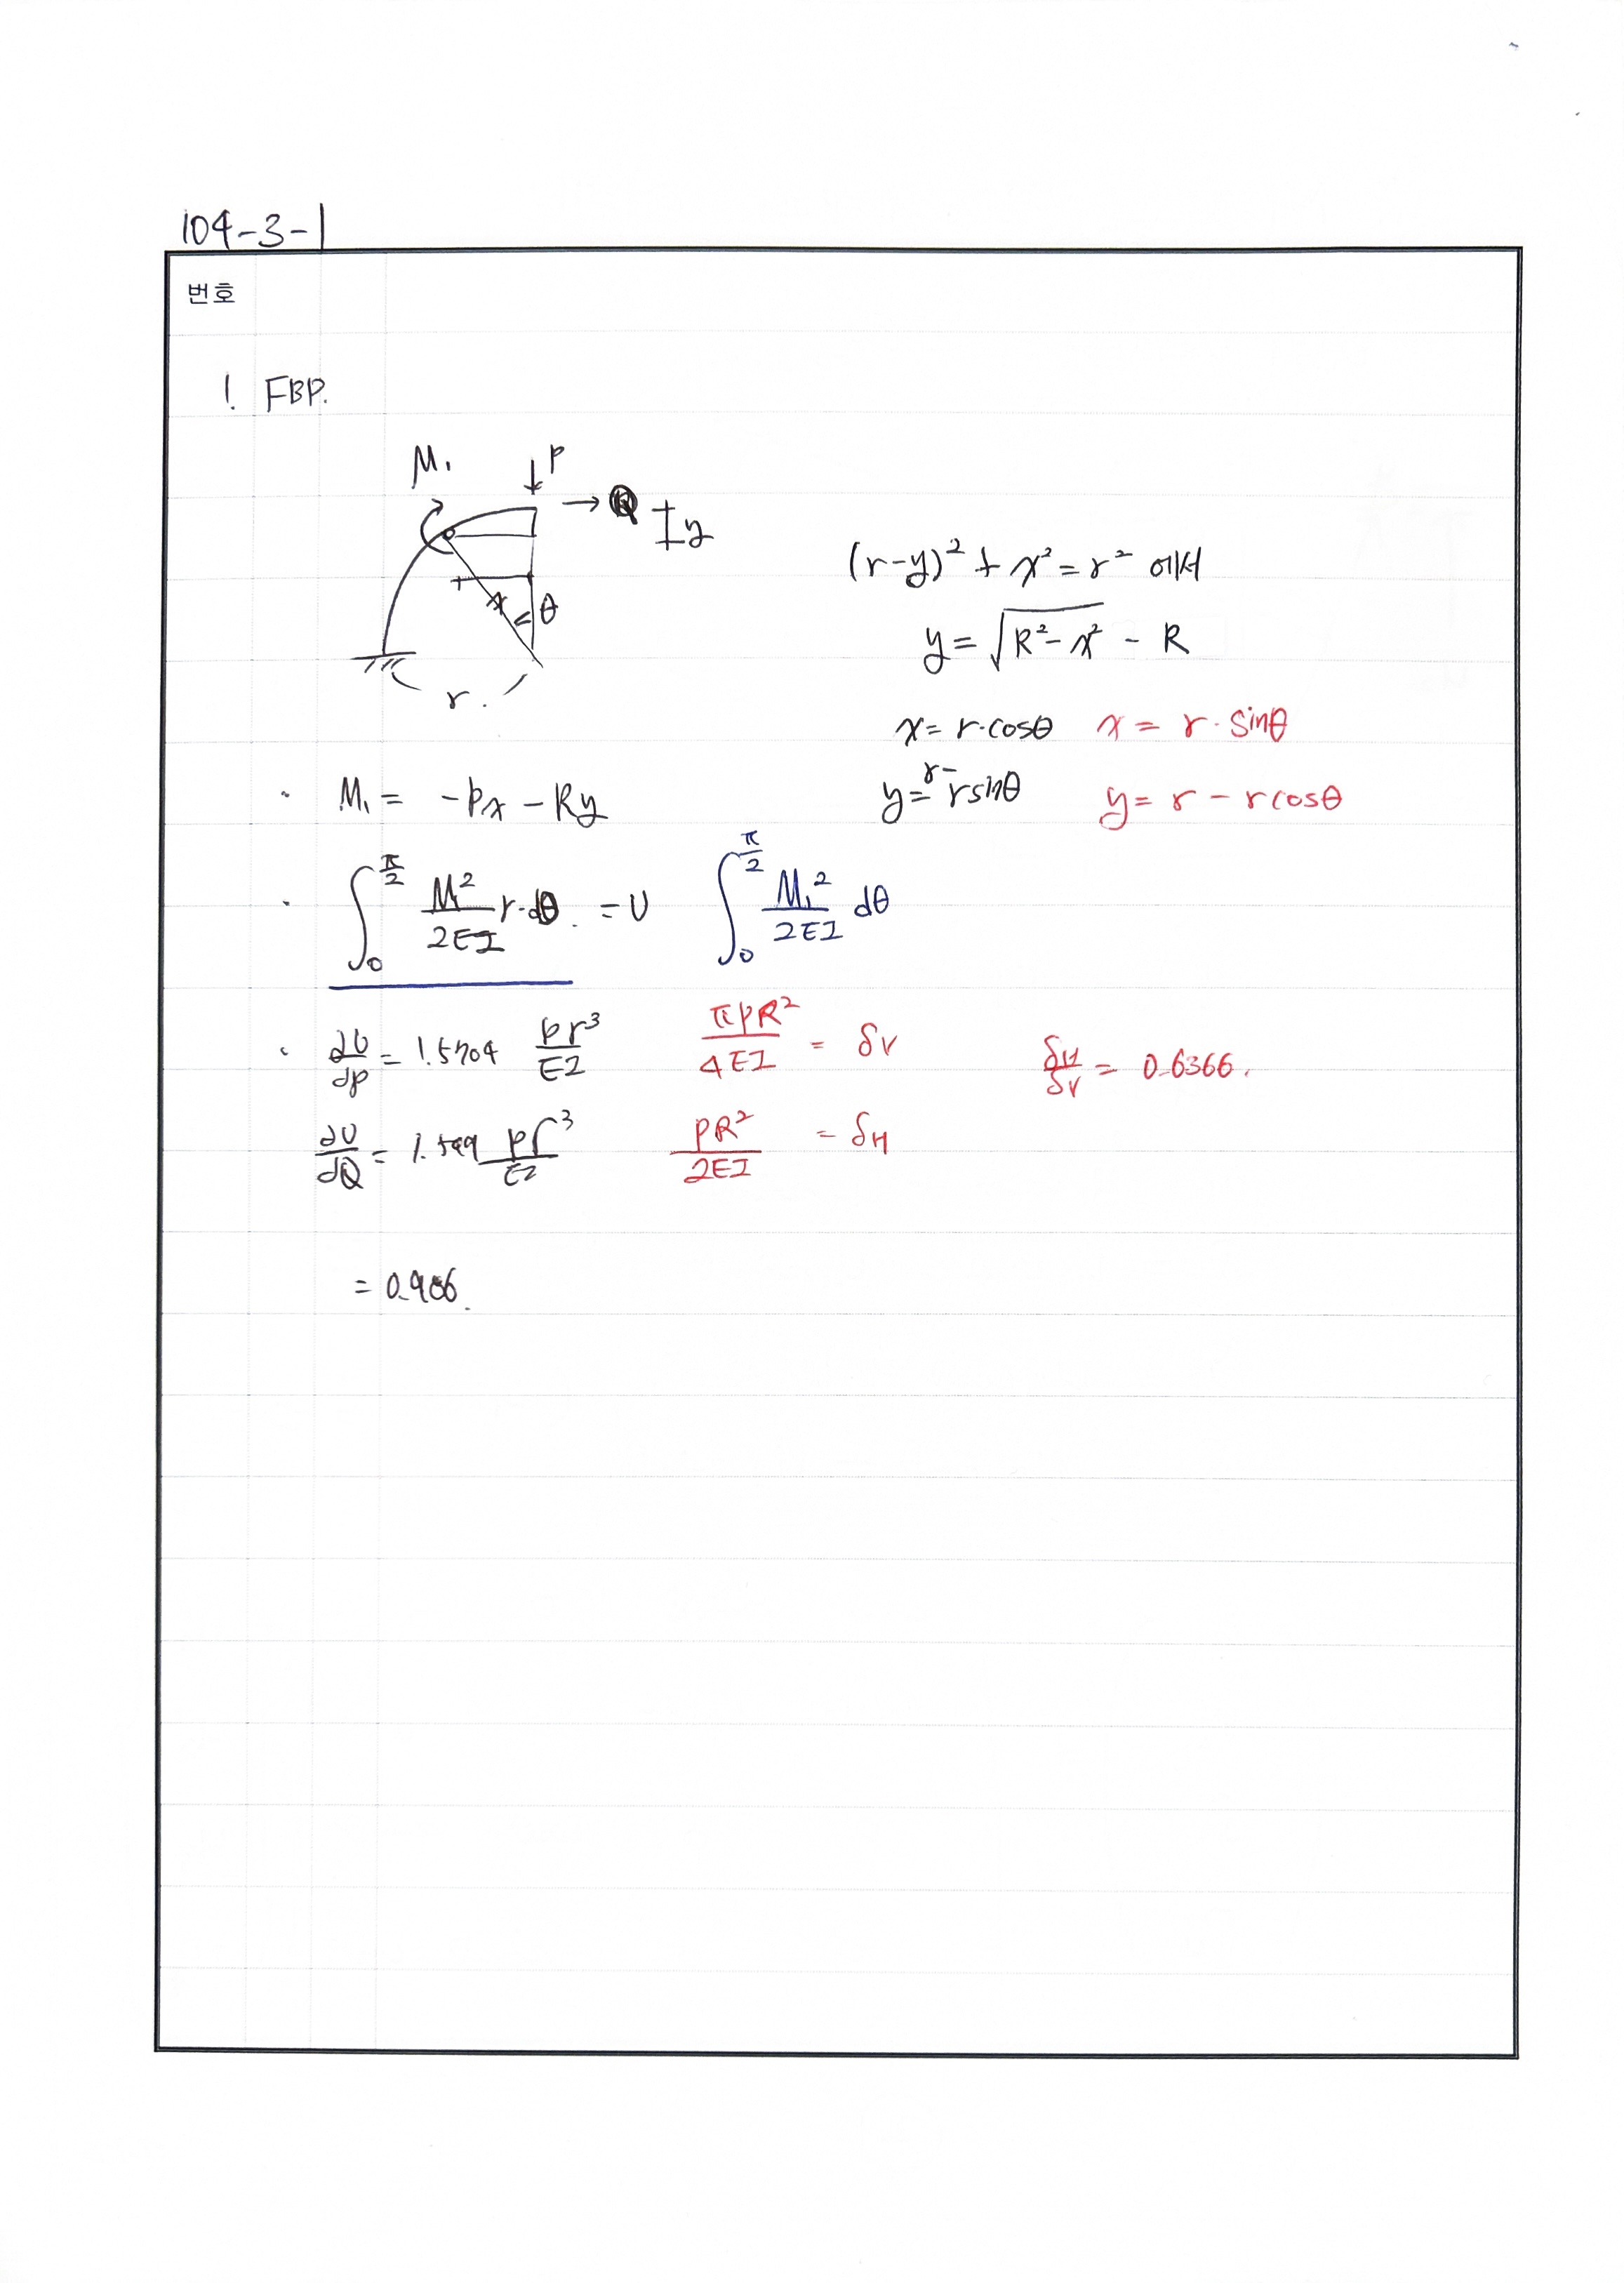 104-3-1
번호
! FBP.
M₁ ↓P
→ Q y
x θ
r.
(r-y)² + x² = r² 에서
y = √R²-x² - R
x = r·cosθ x = r·sinθ
y = r-rsinθ y = r - rcosθ
· M₁ = -Px - Ry
· ∫₀^(π/2) M²/2EI r·dθ. = U ∫₀^(π/2) M₁²/2EI dθ
· ∂U/∂P = 1.5704 Pr³/EI πPR²/4EI = δV δH/δV = 0.6366.
∂U/∂Q = Pr³/EI PR²/2EI = δH
= 0.906.